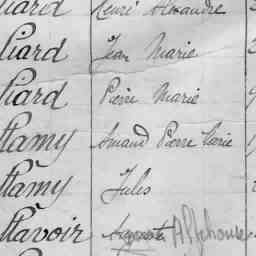 liard Henri Alexandre
liard Jean Marie
liard Pierre Marie
llamy Amand Pierre Marie
llamy Jules
llavoir Alphonse